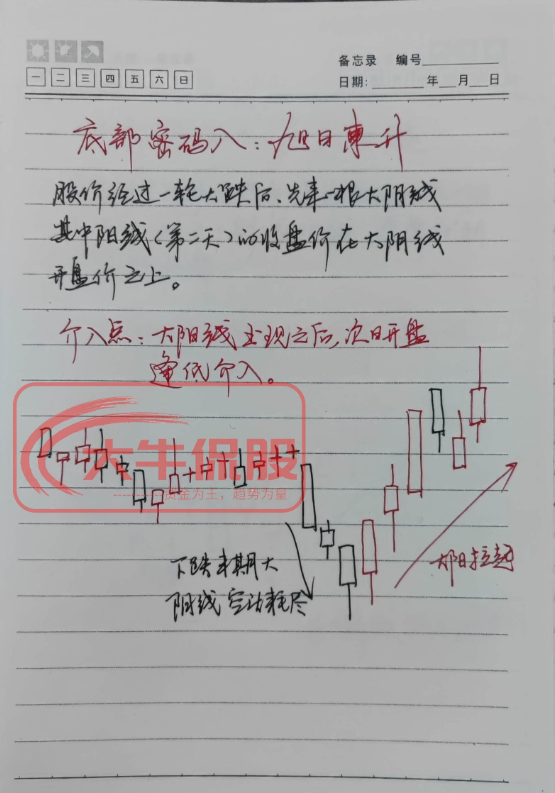 备忘录 编号
一 二 三 四 五 六 日
日期: 年 月 日
底部密码八:旭日東升
股价经过一轮大跌后、先来一根大阴线
其中阳线(第二天)的收盘价在大阴线
开盘价之上。
介入点:大阳线出现之后,次日开盘
逢低介入。
大牛保股
资金为王,趋势为量
下跌末期大
阴线空动耗尽
大阳拉起